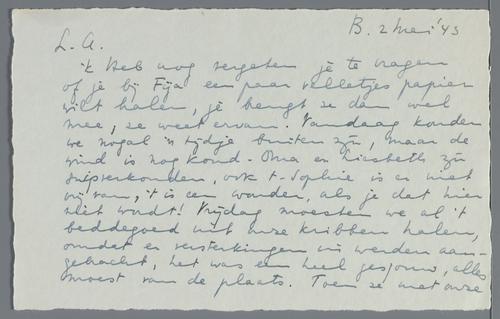 B. 2 Mei '43
L. A.
ik heb nog vergeten je te vragen
of je bij Fija een paar velletjes papier
wilt halen, je brengt ze dan wel
mee, ze weet ervan. Vandaag konden
we nogal 'n tijdje buiten zijn, maar de
wind is nog koud - Oma en Liesbeth zijn
snipverkouden, ook t. Sophie is er niet
vrij van, 't is een wonder, als je dat hier
niet wordt! Vrijdag moesten we al 't
beddegoed uit onze kribben halen,
omdat er versterkingen in werden aan-
gebracht, het was een heel gesjouw, alles
moest van de plaats. Toen ze met onze